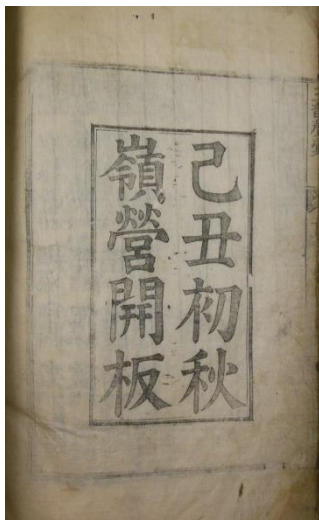 己丑初秋
嶺營開板